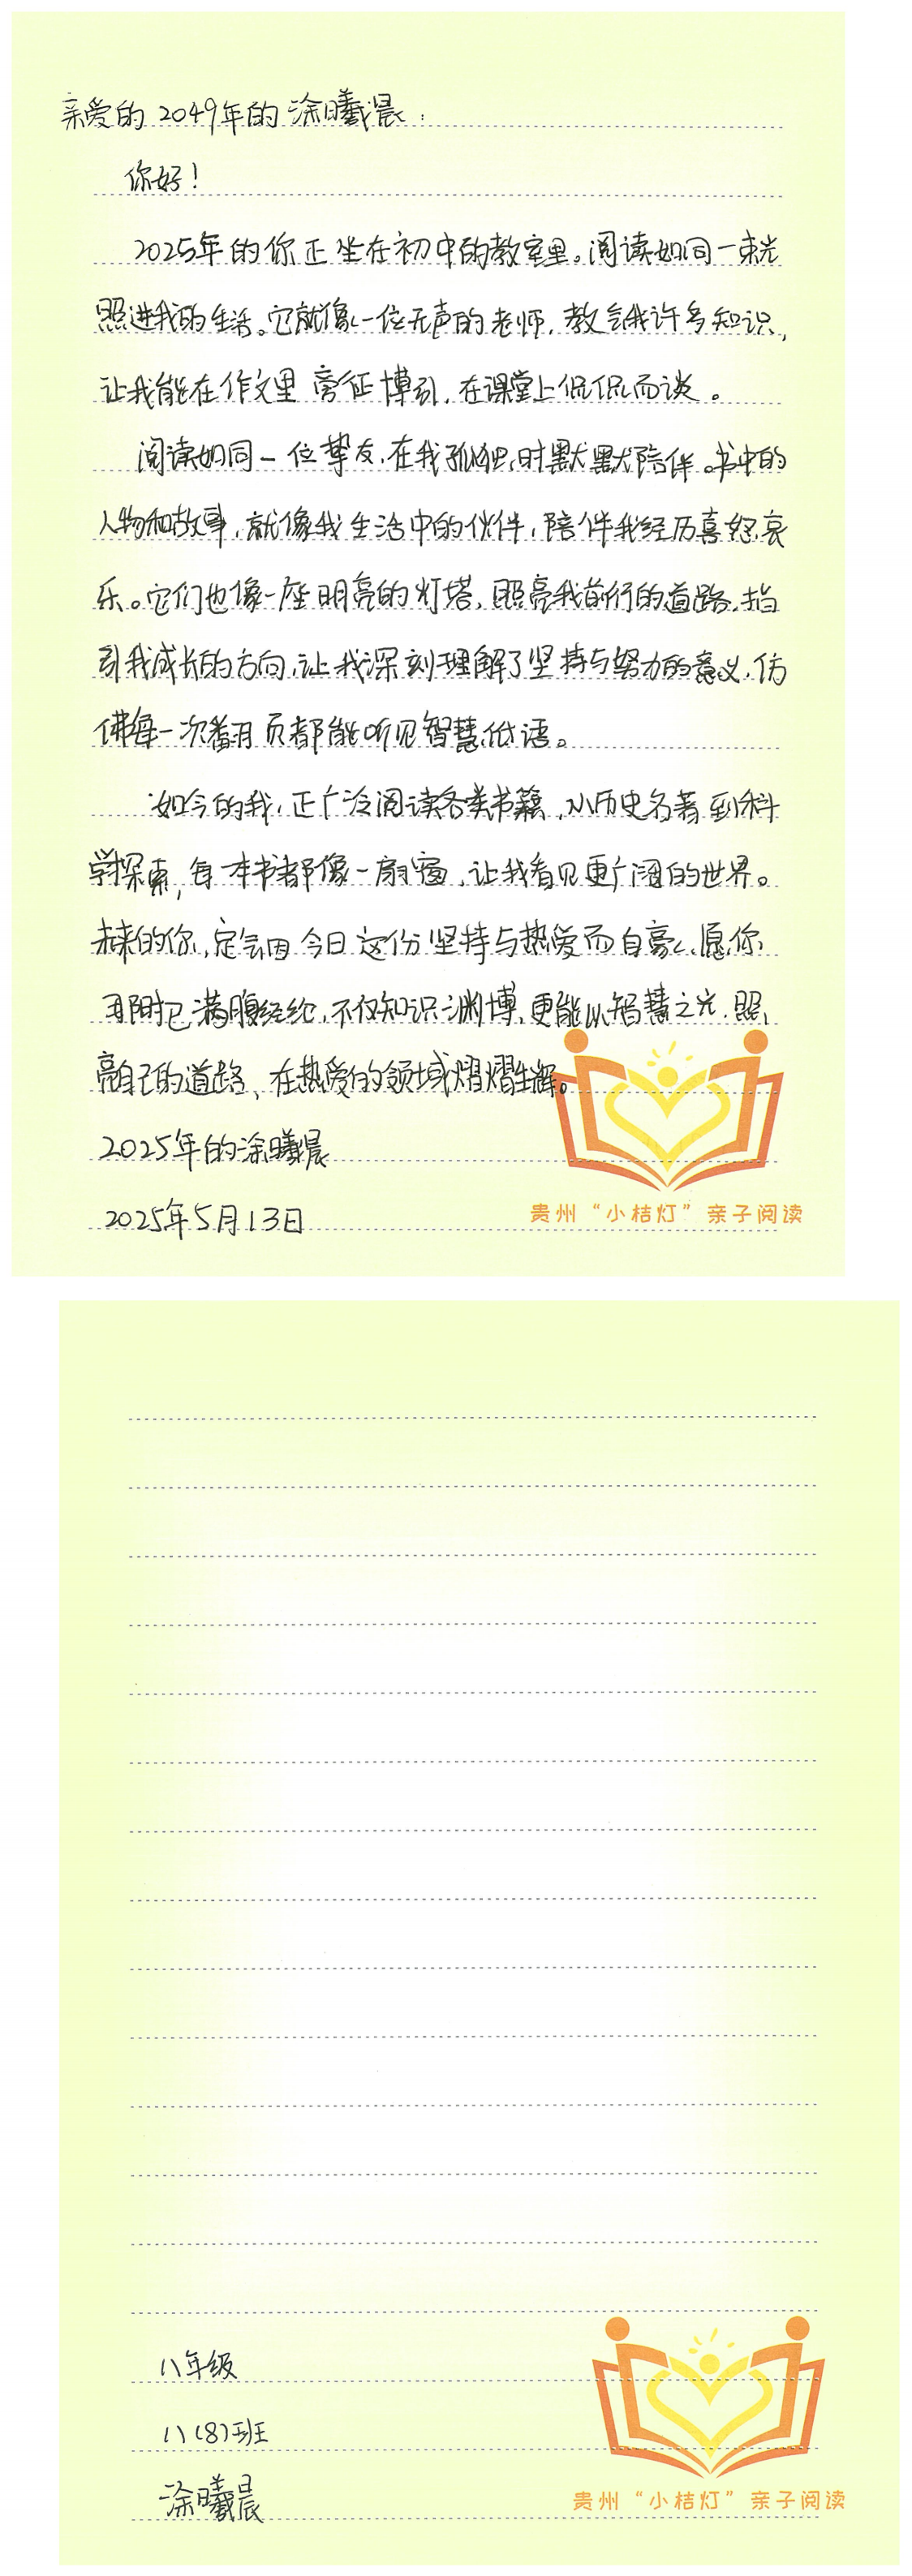 亲爱的2049年的涂曦晨:
你好!
2025年的你正坐在初中的教室里。阅读如同一束光
照进我的生活。它就像一位无声的老师,教会我许多知识,
让我能在作文里旁征博引,在课堂上侃侃而谈。
阅读如同一位挚友,在我孤独时默默陪伴。书中的
人物和故事,就像我生活中的伙伴,陪伴我经历喜怒哀
乐。它们也像一座明亮的灯塔,照亮我前行的道路,指
引我成长的方向,让我深刻理解了坚持与努力的意义,仿
佛每一次翻页都能听见智慧低语。
如今的我,正广泛阅读各类书籍,从历史名著到科
学探索,每一本书都像一扇窗,让我看见更广阔的世界。
未来的你,定会因今日这份坚持与热爱而自豪,愿你
那时已满腹经纶,不仅知识渊博,更能以智慧之光,照
亮自己的道路,在热爱的领域熠熠生辉。
2025年的涂曦晨
2025年5月13日
贵州“小桔灯”亲子阅读
八年级
八(8)班
涂曦晨
贵州“小桔灯”亲子阅读